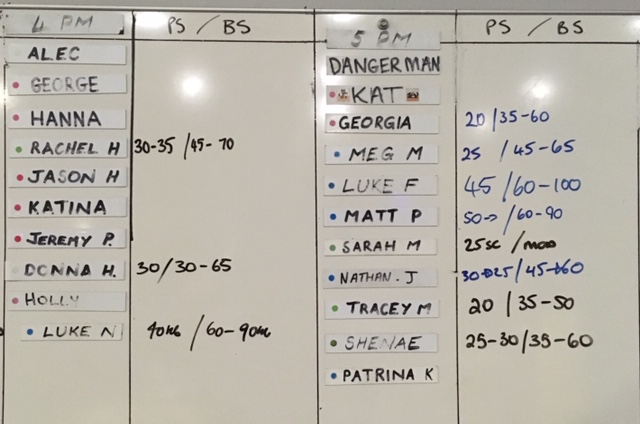 4 PM PS / BS
ALEC
GEORGE
HANNA
RACHEL H 30-35 / 45-70
JASON H
KATINA
JEREMY P.
DONNA H. 30/30-65
HOLLY
LUKE N 40kg / 60-90kg
5 PM PS / BS
DANGERMAN
KAT
GEORGIA 20/35-60
MEG M 25 / 45-65
LUKE F 45/60-100
MATT P 50-> /60-90
SARAH M 25sc /
NATHAN.J /45
TRACEY M 20 / 35-50
SHENAE 25-30/35-60
PATRINA K